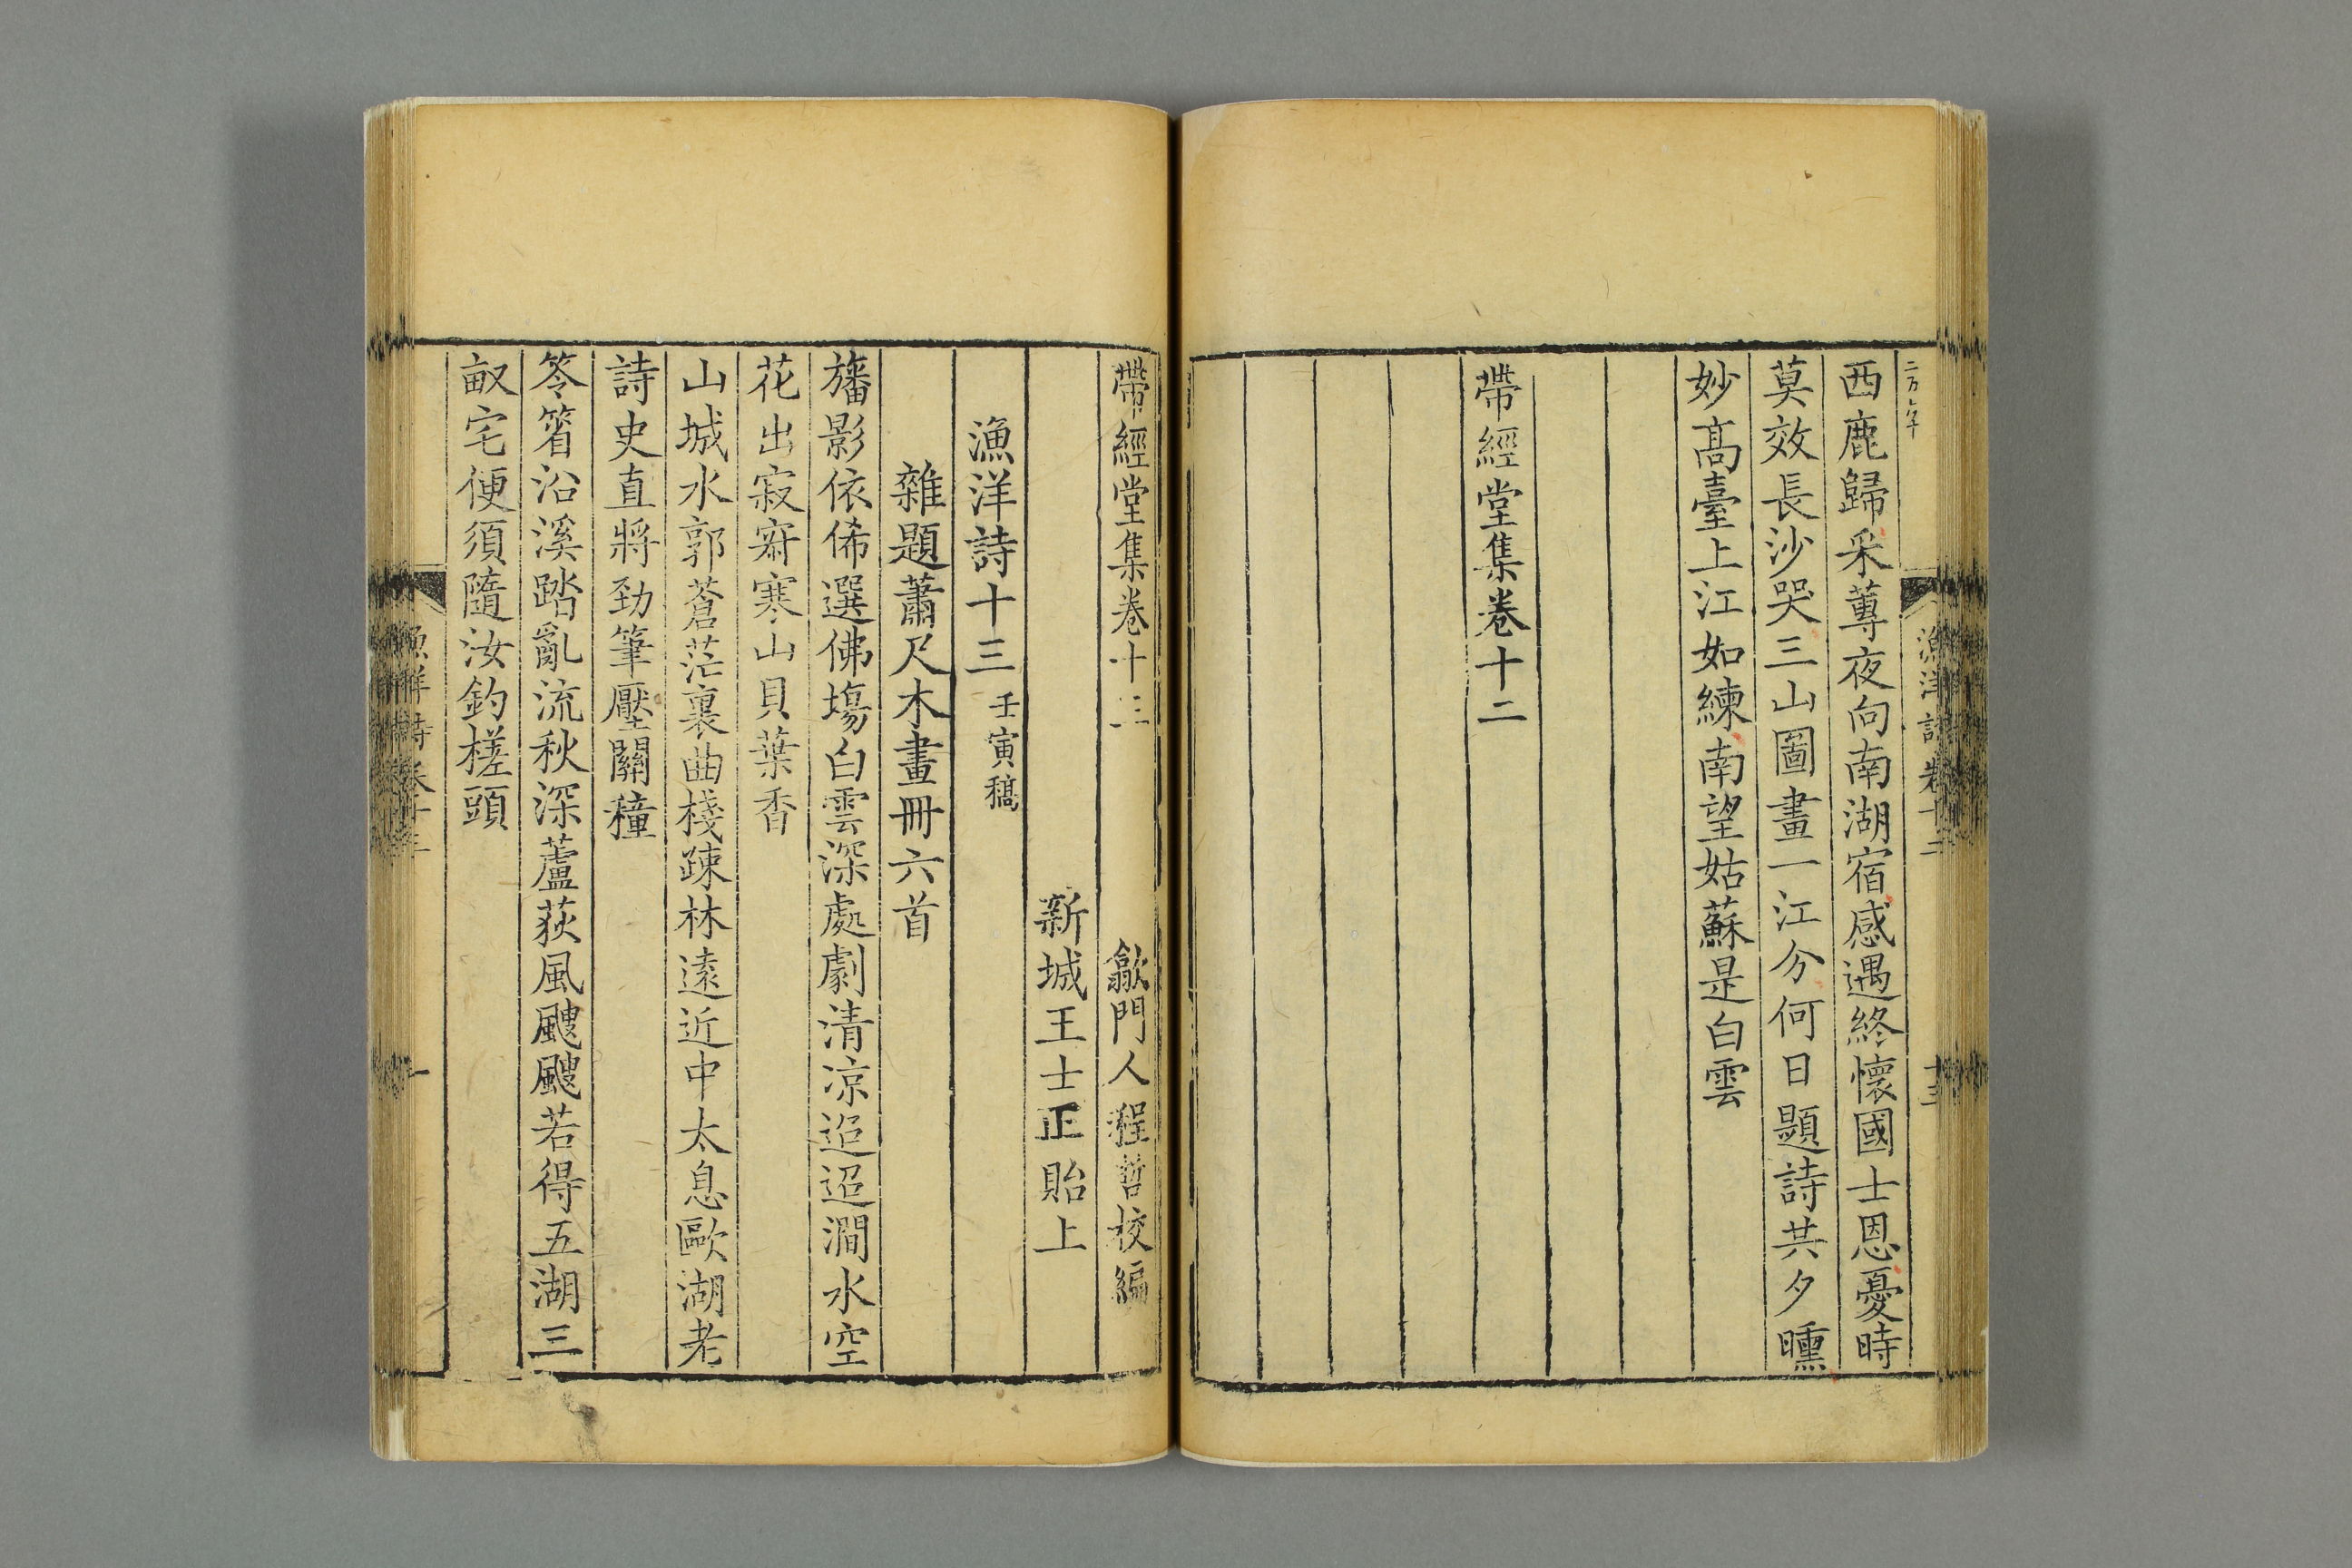 西鹿歸采蓴夜向南湖宿感遇終懷國士恩憂時
莫效長沙哭三山圖畫一江分何日題詩共夕曛
妙高臺上江如練南望姑蘇是白雲
帶經堂集卷十二
漁洋詩卷十二
十三
帶經堂集卷十三 歙門人程哲校編
新城王士正貽上
漁洋詩十三 壬寅稿
雜題蕭尺木畫冊六首
旛影依俙選佛塲白雲深處劇清涼迢迢澗水空
花出寂寞寒山貝葉香
山城水郭蒼茫裏曲棧踈林遠近中太息歐湖老
詩史直將勁筆壓關穜
笭箵沿溪踏亂流秋深蘆荻風颼颼若得五湖三
畝宅便須隨汝釣槎頭
漁洋詩卷十三
一